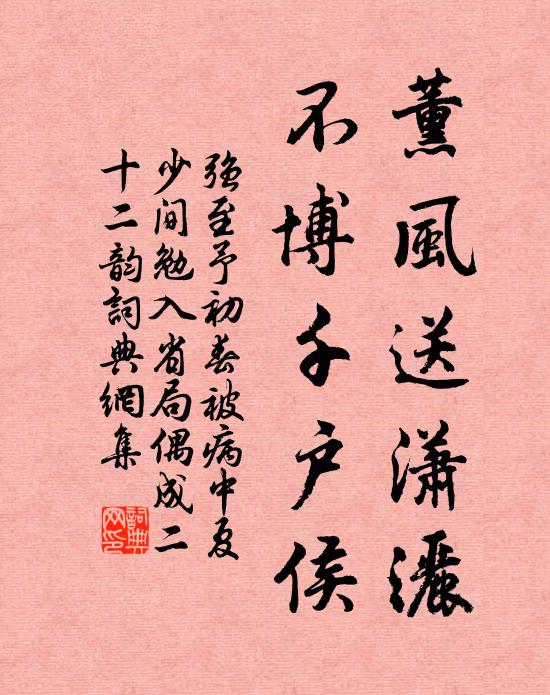 薰風送瀟灑
不博千戶侯
強至予初春被病中夏
少間勉入省局偶成二
十二韵詞典網集
詞典網印